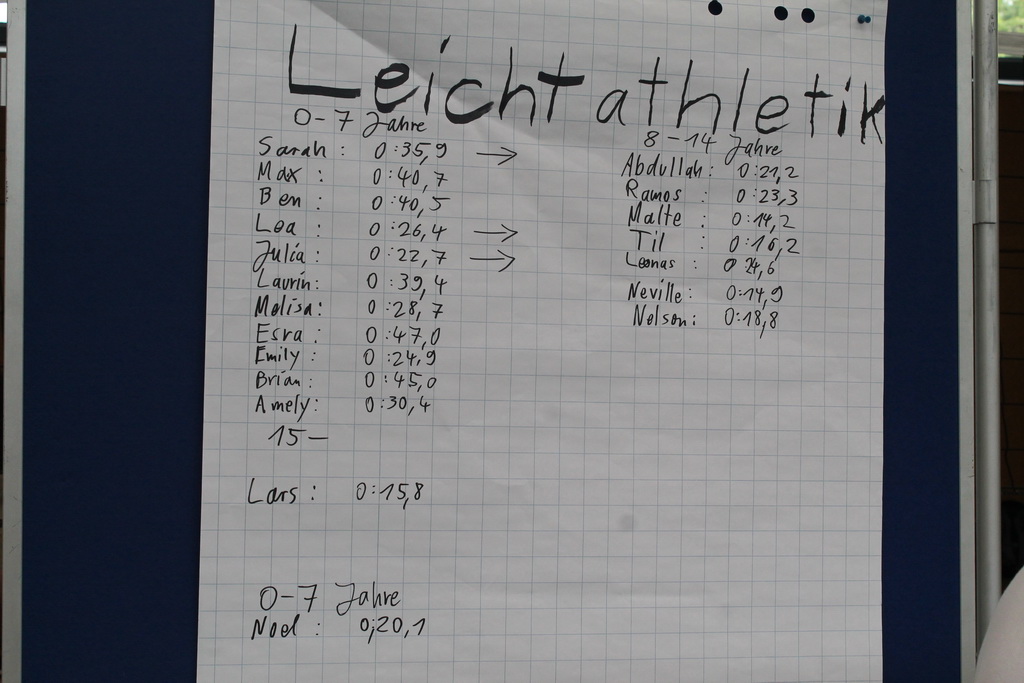 Leichtathletik
0-7 Jahre
Sarah: 0:35,9 →
Max: 0:40,7
Ben: 0:40,5
Lea: 0:26,4 →
Julia: 0:22,7 →
Laurin: 0:39,4
Melisa: 0:28,7
Esra: 0:47,0
Emily: 0:24,9
Brian: 0:45,0
Amely: 0:30,4
15-
Lars: 0:15,8
0-7 Jahre
Noel: 0;20,1
8-14 Jahre
Abdullah: 0:21,2
Ramos: 0:23,3
Malte: 0:14,2
Til: 0:16,2
: 0 24,6
Neville: 0:14,9
Nelson: 0:18,8